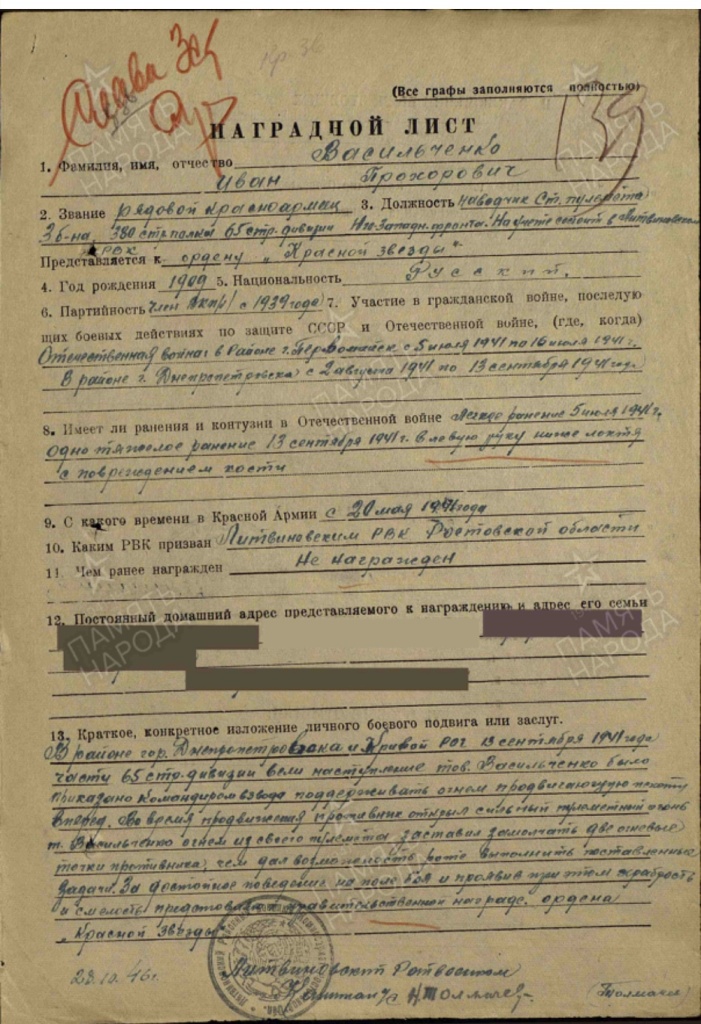 Слава 3ст
(Все графы заполняются полностью)
139
НАГРАДНОЙ ЛИСТ
1. Фамилия, имя, отчество Васильченко
Иван Прохорович
2. Звание рядовой красноармеец 3. Должность наводчик Ст. пулемета
3 б-на, 380 стр. полка 65 стр. дивизии Юго-Западн. фронта. На учете состоит в Литвиновском
РВК
Представляется к ордену „Красной звезды“
4. Год рождения 1909 5. Национальность Русский.
6. Партийность член ВКП(б) с 1939 года 7. Участие в гражданской войне, последую
щих боевых действиях по защите СССР и Отечественной войне, (где, когда)
Отечественная война: в Районе г. Первомайск с 5 июля 1941 по 16 июля 1941г.
В районе г. Днепропетровска с 2 августа 1941 по 13 сентября 1941 года
8. Имеет ли ранения и контузии в Отечественной войне Легкое ранение 5 июля 1941г.
одно тяжелое ранение 13 сентября 1941г. в левую руку ниже локтя
с повреждением кости
9. С какого времени в Красной Армии с 20 мая 1941 года
10. Каким РВК призван Литвиновским РВК Ростовской области
11. Чем ранее награжден Не награжден
12. Постоянный домашний адрес представляемого к награждению и адрес его семьи
13. Краткое, конкретное изложение личного боевого подвига или заслуг.
В районе гор. Днепропетровска и Кривой Рог 13 сентября 1941 года
части 65 стр. дивизии вели наступление тов. Васильченко было
приказано командиром взвода поддерживать огнем продвигающую пехоту
вперед. Во время продвижения противник открыл сильный пулеметный огонь
т. Васильченко огнем из своего пулемета заставил замолчать две огневые
точки противника, чем дал возможность роте выполнить поставленные
задачи. За достойное поведение на поле боя и проявив при этом храбрость
и смелость представляю к правительственной награде. ордена
„Красной Звезды“
Литвиновский Райвоенком
28.10.46г.
Капитан а/с Н Толмачев
(Толмачев)
ПАМЯТЬ НАРОДА